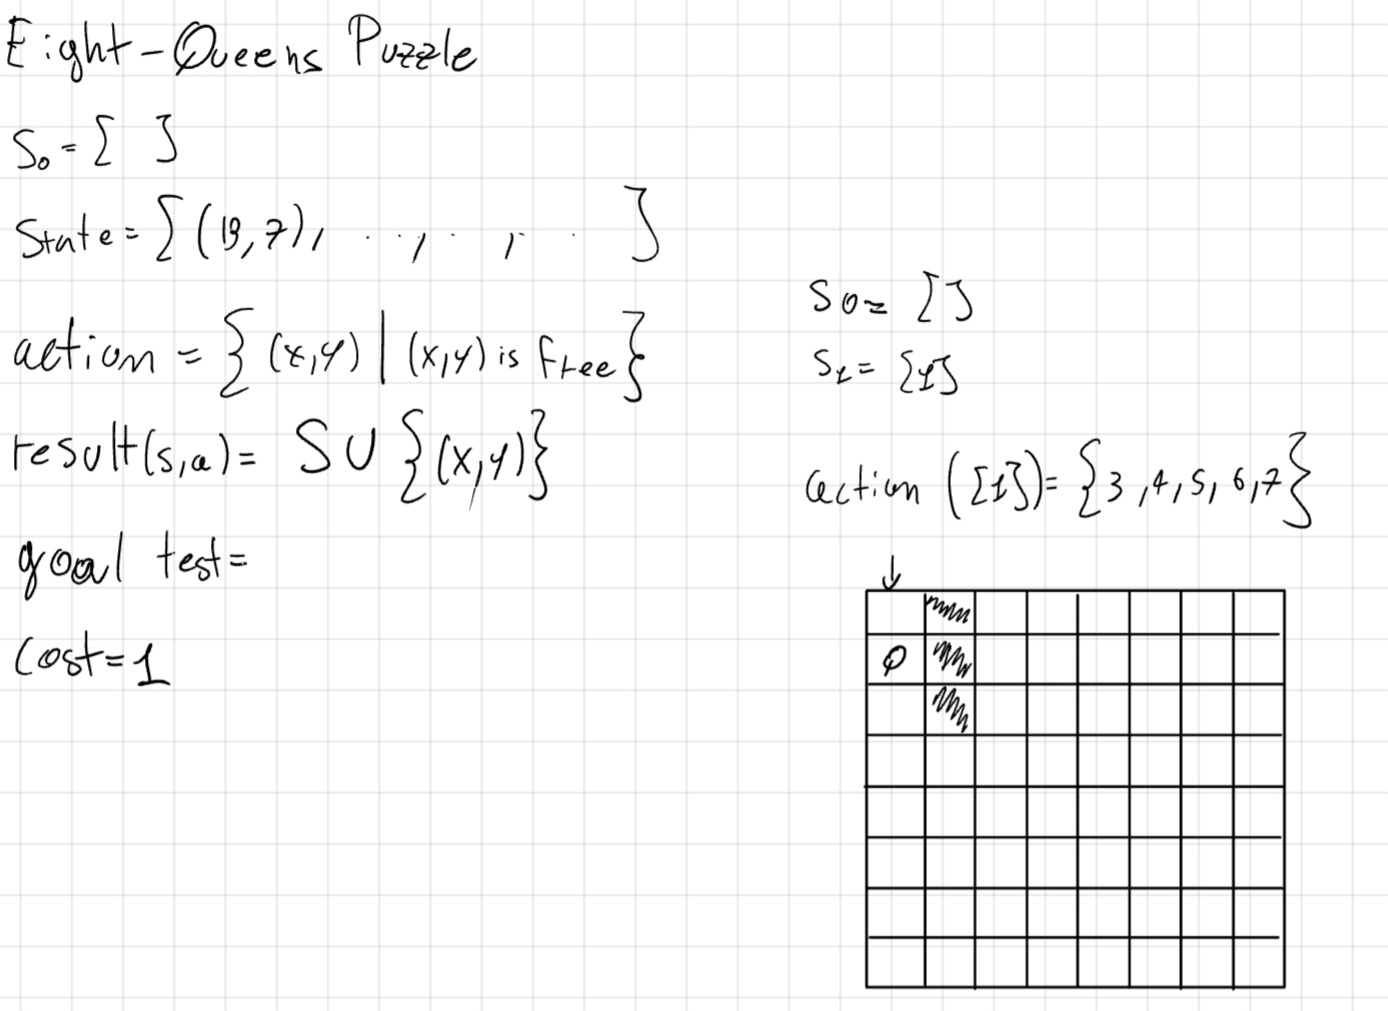 Eight-Queens Puzzle
S₀ = [ ]
State = [(19,7), . . , . , . ]
action = {(x,y) | (x,y) is free}
result(s,a) = S ∪ {(x,y)}
goal test =
Cost = 1
S0 = []
S1 = [1]
action ([1]) = {3,4,5,6,7}
↓
Q